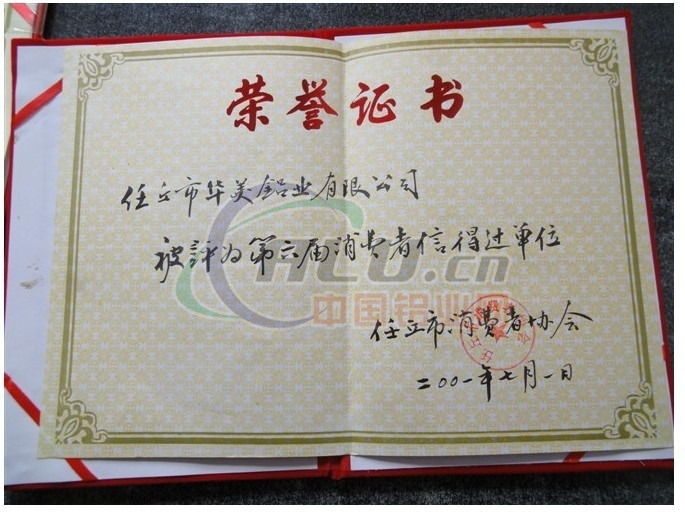 荣誉证书
任丘市华美铝业有限公司
被评为第六届消费者信得过单位
任丘市消费者协会
二00一年七月一日
HCU.cn
中国铝业网